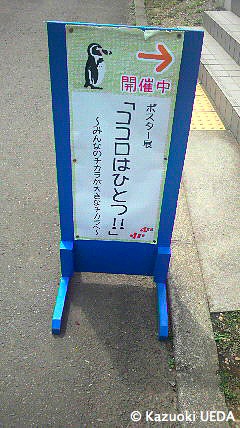 開催中
ポスター展
「ココロはひとつ!!」
～みんなのチカラが大きなチカラへ～
© Kazuoki UEDA